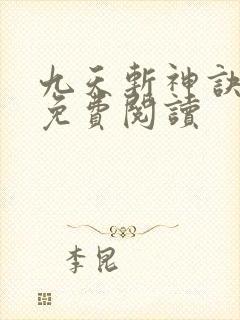 九天斬神訣
免費閱讀
李昆